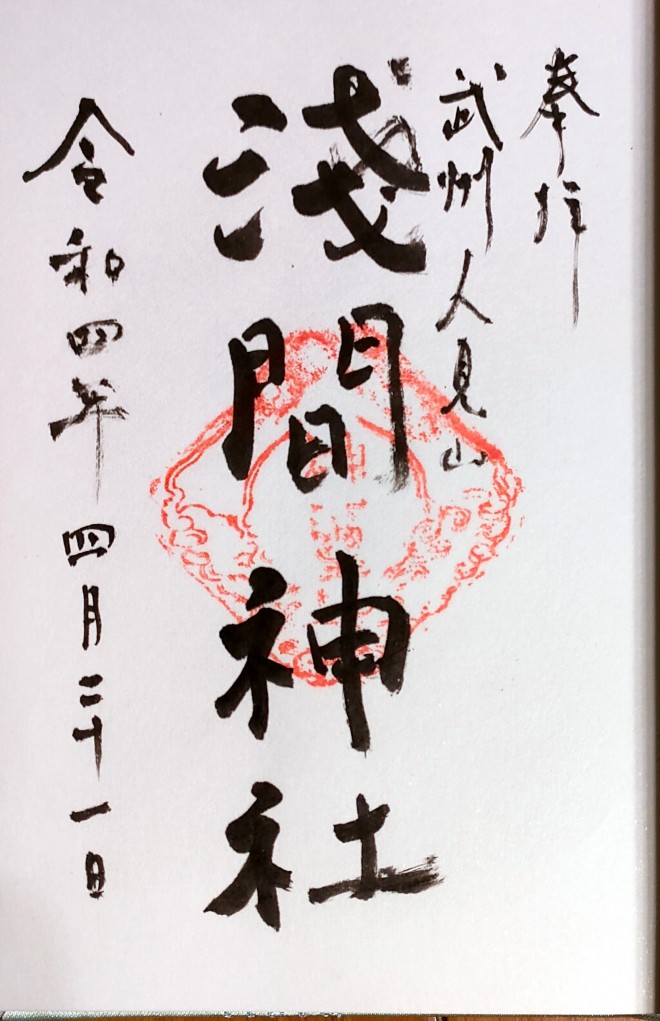 奉拝
武州人見山
淺間神社
令和四年四月二十一日